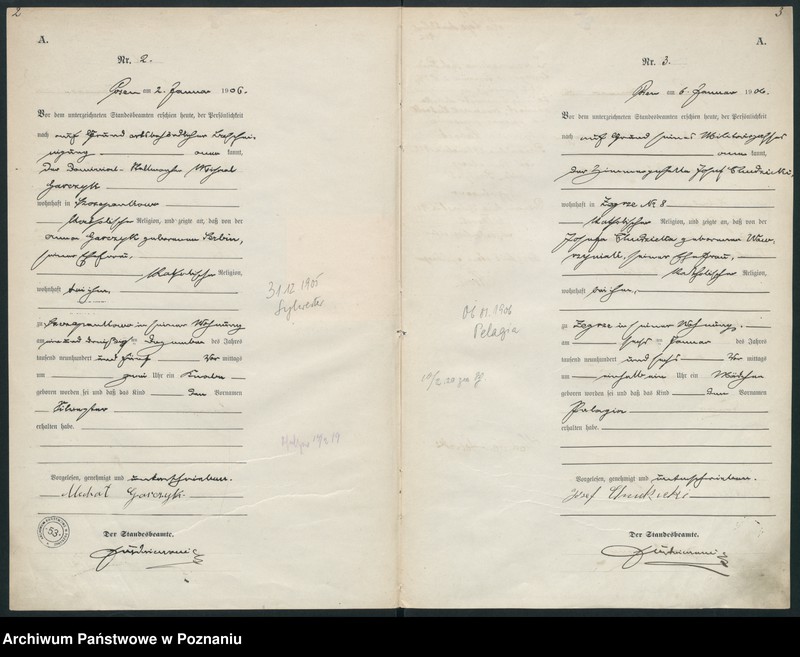 2
A.
Nr. 2.
Posen am 2. Januar 1906.
Vor dem unterzeichneten Standesbeamten erschien heute, der Persönlichkeit
nach auf Grund ortsbehördlicher Beschei-
nigung kannt,
der Dominial- Michael
Garczyk
wohnhaft in
katholischer Religion, und zeigte an, daß von der
Anna Garczyk geborenen Serbin,
seiner Ehefrau,
katholischer Religion,
wohnhaft bei ihm,
zu in seiner Wohnung
am ein und dreißigsten Dezember des Jahres
tausend neunhundert und fünf Vor mittags
um zwei Uhr ein Knabe
geboren worden sei und daß das Kind den Vornamen
Silvester
erhalten habe.
Vorgelesen, genehmigt und unterschrieben.
Michał Garczyk
Der Standesbeamte.
53.
31.12 1905
Sylwester
3
A.
Nr. 3.
Posen am 6. Januar 1906.
Vor dem unterzeichneten Standesbeamten erschien heute, der Persönlichkeit
nach auf Grund seines Militärpasses
kannt,
der Zimmergeselle Josef
wohnhaft in Zegrze Nr. 8
katholischer Religion, und zeigte an, daß von der
Josefa geborenen Waw-
rzyniak, seiner Ehefrau,
katholischer Religion,
wohnhaft bei ihm,
zu Zegrze in seiner Wohnung,
am sechsten Januar des Jahres
tausend neunhundert und sechs Vor mittags
um einhalb ein Uhr ein Mädchen
geboren worden sei und daß das Kind den Vornamen
Pelagia
erhalten habe.
Vorgelesen, genehmigt und unterschrieben.
Józef
Der Standesbeamte.
06.01.1906
Pelagia
Archiwum Państwowe w Poznaniu